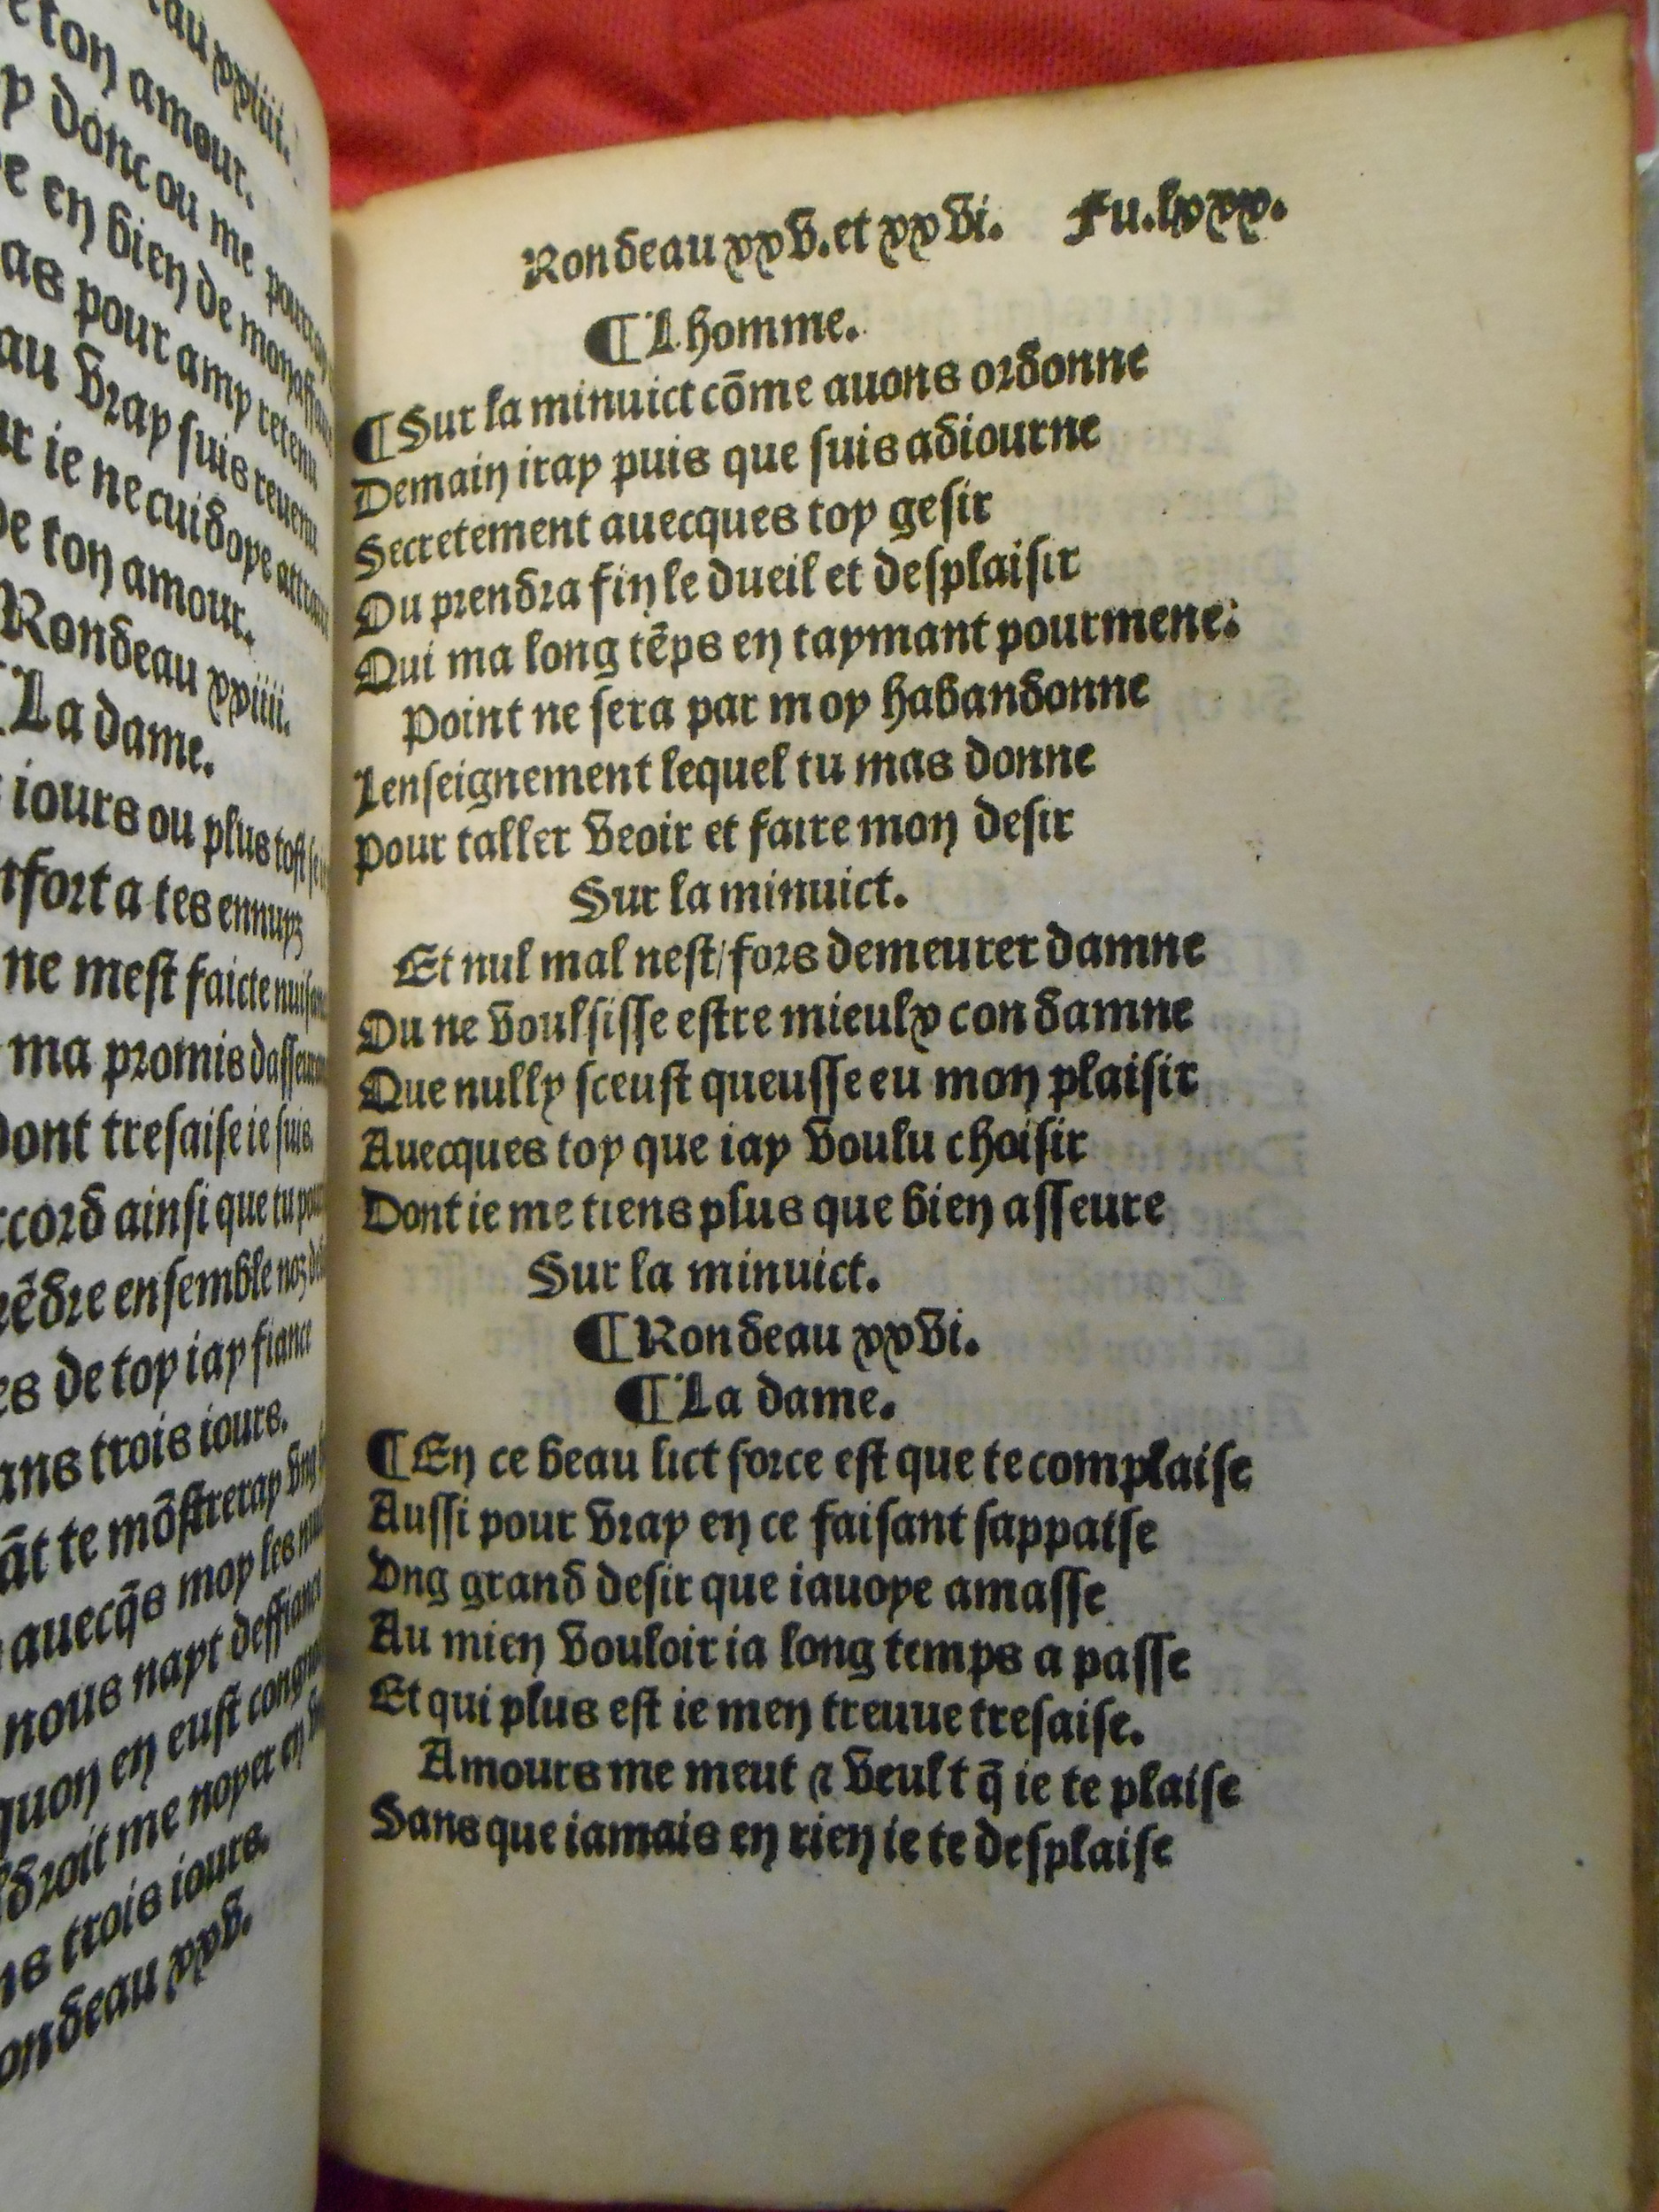 au xxiiii.
e ton amour.
y donc ou me
e en bien de mon
as pour amy retenu
au vray suis reuenu
r ie ne cuidoye
De ton amour.
Rondeau xxiiii.
¶La dame.
iours ou plus tost
fort a tes ennuyz
ne mest faicte
ma promis
Dont tresaise ie suis.
ccord ainsi que tu
dre ensemble noz
es de toy iay fiance
ans trois iours.
āt te mōstreray vng
auecq̄s moy les
nous nayt deffiance
quon en eust
droit me noyer en
ns trois iours.
ondeau xxv.
Rondeau xxv. et xxvi. Fu. lxxx.
¶Lhomme.
¶Sur la minuict cōme auons ordonne
Demain iray puis que suis adiourne
Secretement auecques toy gesir
Ou prendra fin le dueil et desplaisir
Qui ma long tēps en taymant pourmene:
Point ne sera par moy habandonne
Lenseignement lequel tu mas donne
Pour taller veoir et faire mon desir
Sur la minuict.
Et nul mal nest/fors demeurer damne
Ou ne voulsisse estre mieulx condamne
Que nully sceust queusse eu mon plaisir
Auecques toy que iay voulu choisir
Dont ie me tiens plus que bien asseure
Sur la minuict.
¶Rondeau xxvi.
¶La dame.
¶En ce beau lict force est que te complaise
Aussi pour vray en ce faisant sappaise
Vng grand desir que iauoye amasse
Au mien vouloir ia long temps a passe
Et qui plus est ie men treuue tresaise.
Amours me meut ⁊ veult q̄ ie te plaise
Sans que iamais en rien ie te desplaise